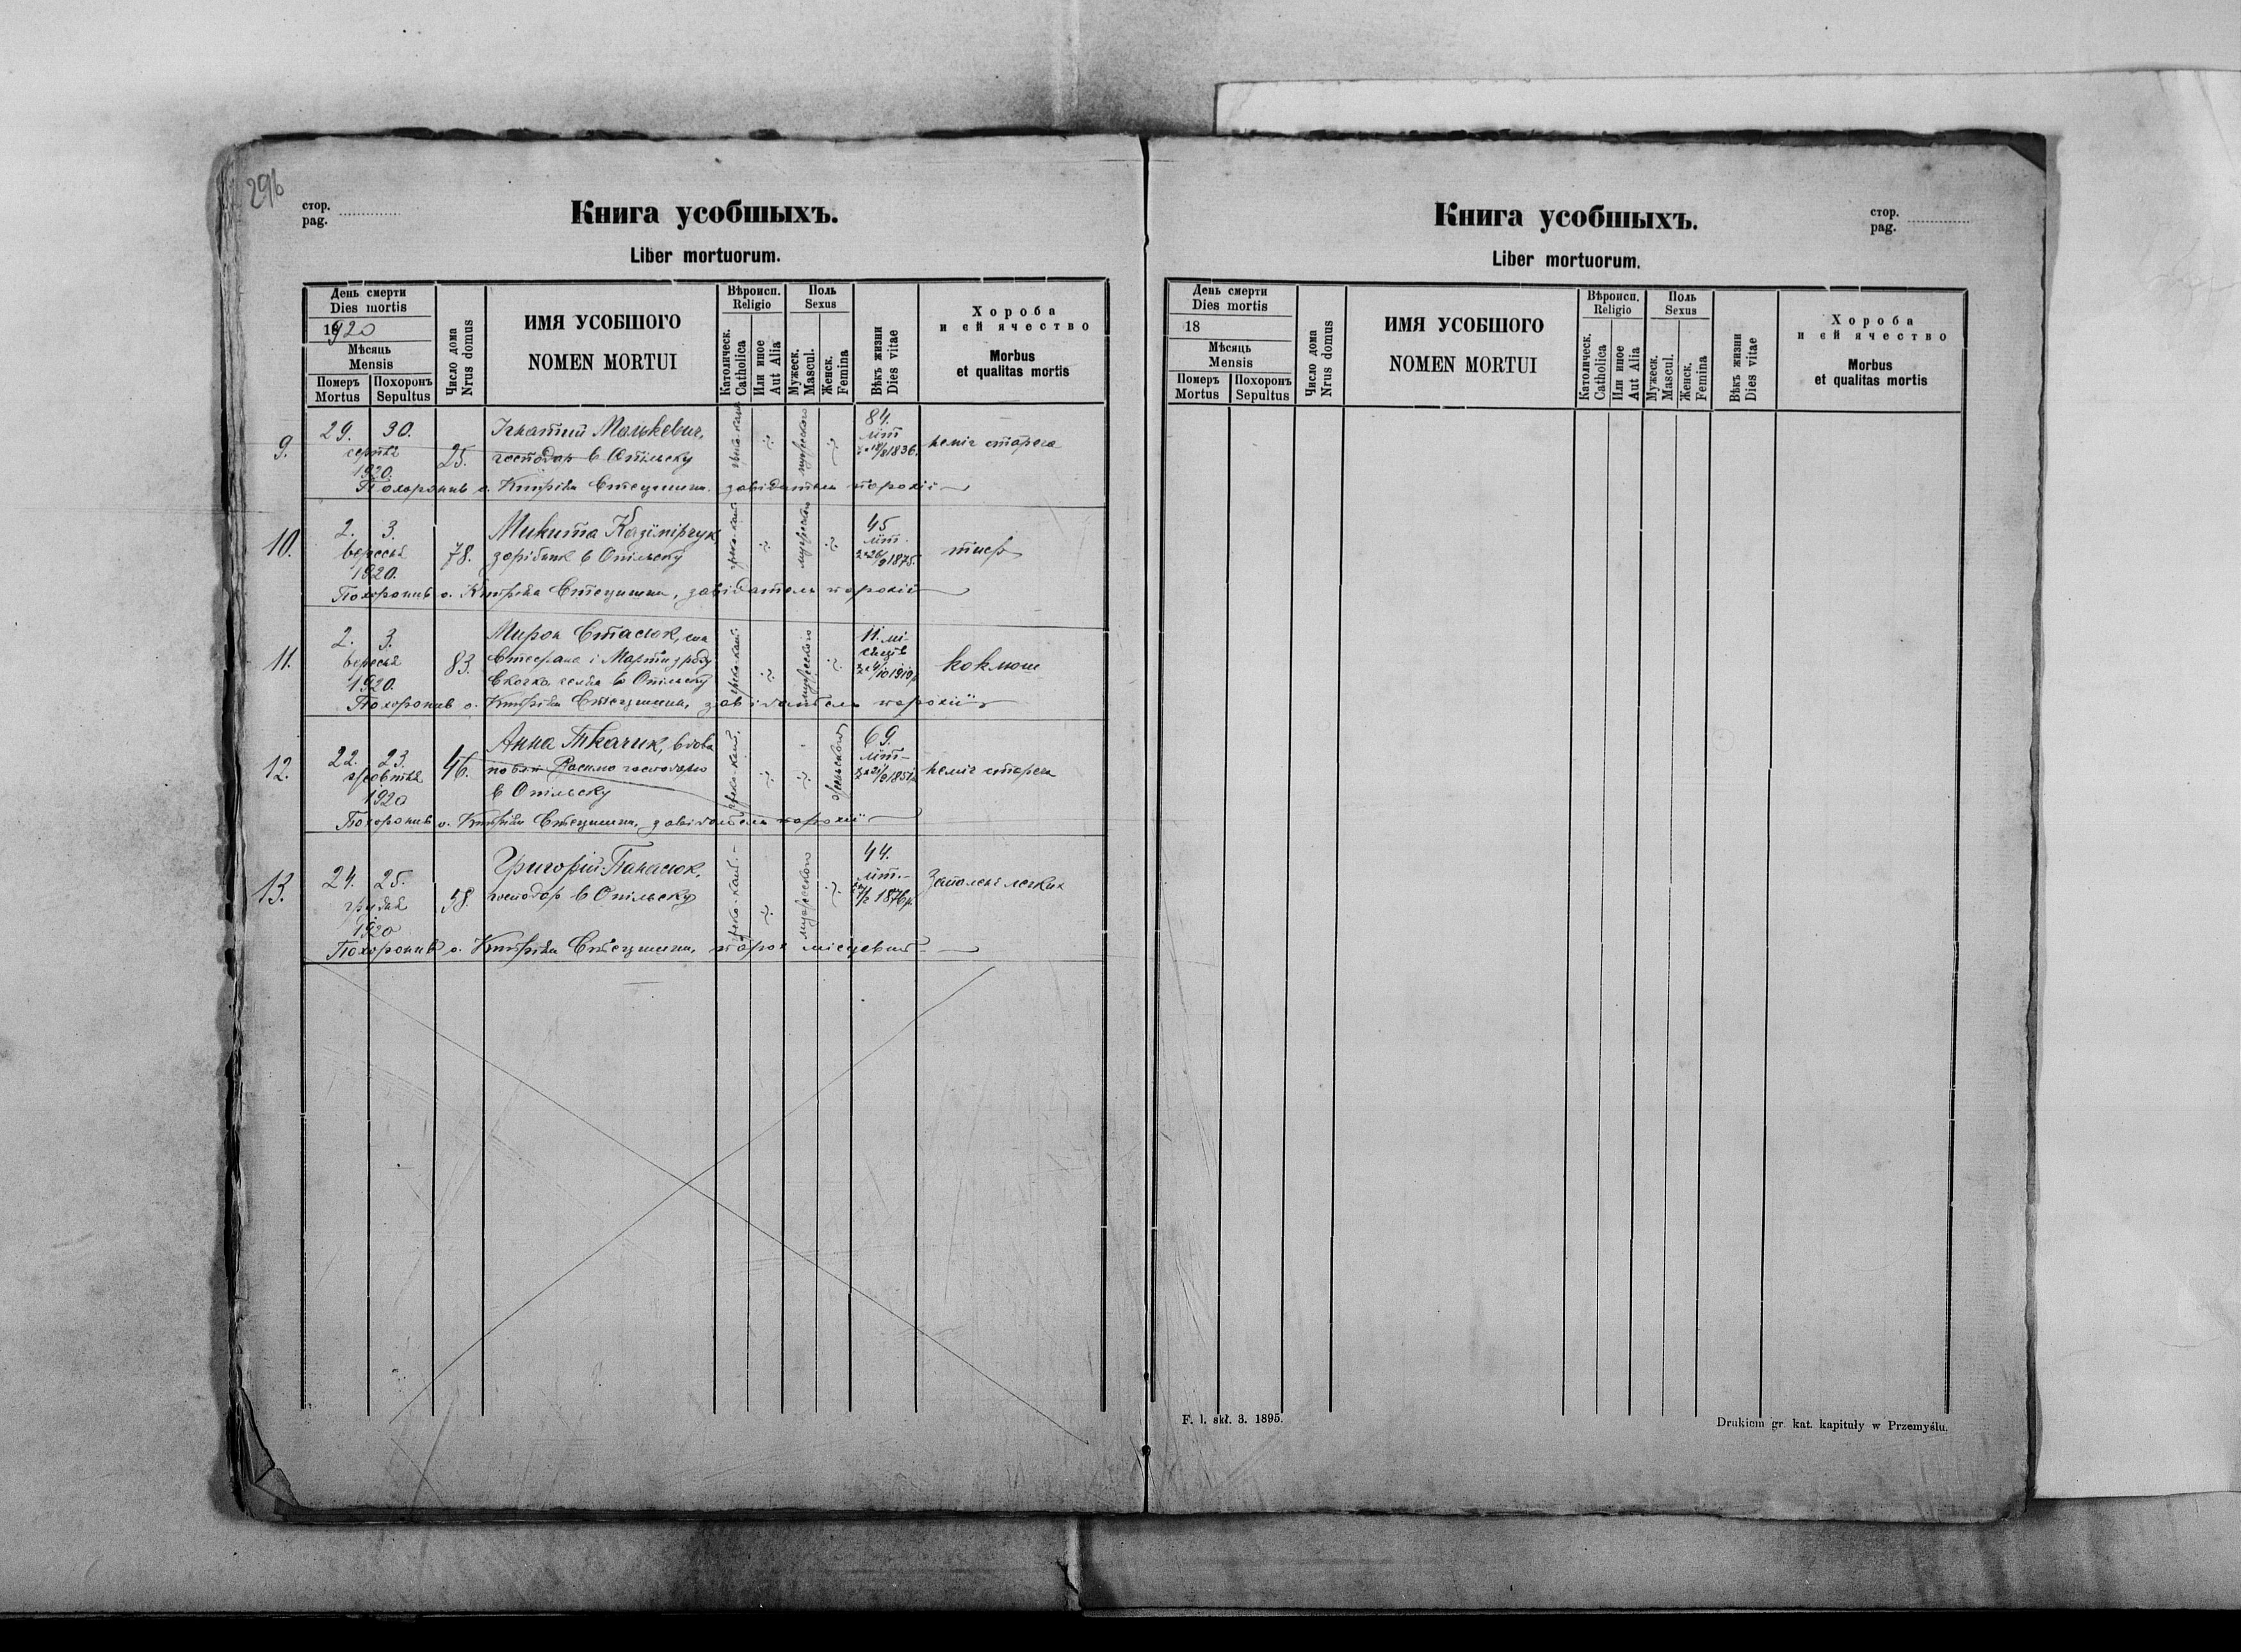 296
стор.
pag.
Книга усобшыхъ.
Liber mortuorum.
День смерти
Dies mortis
1920
Мѣсяць
Mensis
Померъ
Mortus
Похоронъ
Sepultus
Число дома
Nrus domus
ИМЯ УСОБШОГО
NOMEN MORTUI
Вѣроисп.
Religio
Католическ.
Catholica
Или иное
Aut Alia
Поль
Sexus
Мужеск.
Mascul.
Женск.
Femina
Вѣкъ жизни
Dies vitae
Хороба
и єй ячество
Morbus
et qualitas mortis
9. 29. 30. 25. Ігнатий Малькевич, греко-кат. мужеского 84. літ
серпня господар в Опільску 1836. неміч стареча
1920.
Похоронив о. Стецишин завідатель парохії
10. 2. 3. 78. Микита Казімірчук греко-кат. мужеского 45 літ
вересня зарібник в Опільску 1875. тиф
1920.
Похоронив о. Стецишин, завідатель парохії
11. 2. 3. 83. Мирон Стасюк, син греко-кат. мужеского 11. мі-
вересня Стефана і Марти з роду сяців коклюш
1920. в Опільску 1919
Похоронив о. Стецишин, завідатель парохії
12. 22. 23. 46. Анна Ткачик, вдова греко-кат. женьского 69. літ
жовтня господаря 1851 неміч стареча
1920 в Опільску
Похоронив о. Стецишин, завідатель парохії
13. 24. 25. 58. Григорій Панасюк, греко-кат. мужеского 44. літ.
грудня господар в Опільску 1876 р. Запалене легких
1920
Похоронив о. Стецишин, парох місцевий
Книга усобшыхъ.
Liber mortuorum.
стор.
pag.
День смерти
Dies mortis
18
Мѣсяць
Mensis
Померъ
Mortus
Похоронъ
Sepultus
Число дома
Nrus domus
ИМЯ УСОБШОГО
NOMEN MORTUI
Вѣроисп.
Religio
Католическ.
Catholica
Или иное
Aut Alia
Поль
Sexus
Мужеск.
Mascul.
Женск.
Femina
Вѣкъ жизни
Dies vitae
Хороба
и єй ячество
Morbus
et qualitas mortis
F. l. skł. 3. 1895.
Drukiem gr. kat. kapituły w Przemyślu.